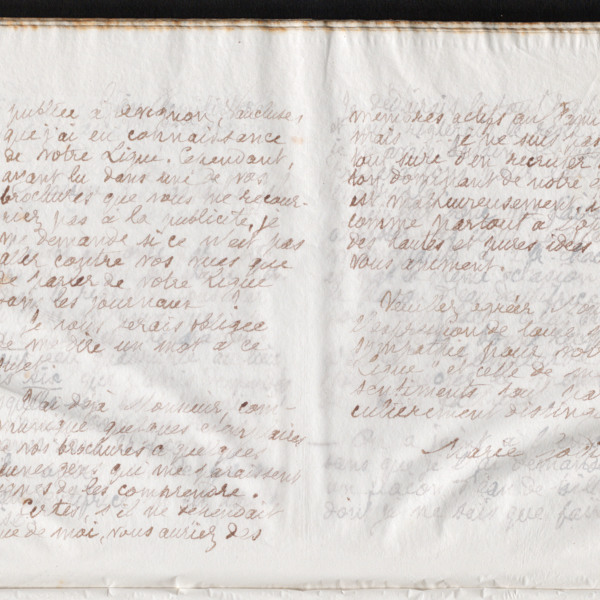 publiée à Avignon, Vaucluse
que j'ai eu connaissance
de votre Ligue. Cependant,
ayant lu dans une de vos
brochures que vous ne recour-
riez pas à la publicité, je
me demande si ce n'est pas
aller contre vos vues que
de parler de votre Ligue
dans les journaux ?
Je vous serais obligée
de me dire un mot à ce
sujet.
J'ai déjà Monsieur, com-
muniqué quelques exemplaires
de vos brochures à quelques
jeunes gens qui me paraissent
dignes de les comprendre.
Certes, s'il ne dépendait
que de moi, vous auriez des
membres actifs en
mais je ne suis pas
tout sûre d'en recruter
ton dominant de notre
est malheureusement,
comme partout à l'op
des hautes et pures idées
vous animent.
Veuillez agréer
l'expression de toute
sympathie pour votre
Ligue, et celle de m
sentiments tout par
culièrement distingu
Marie